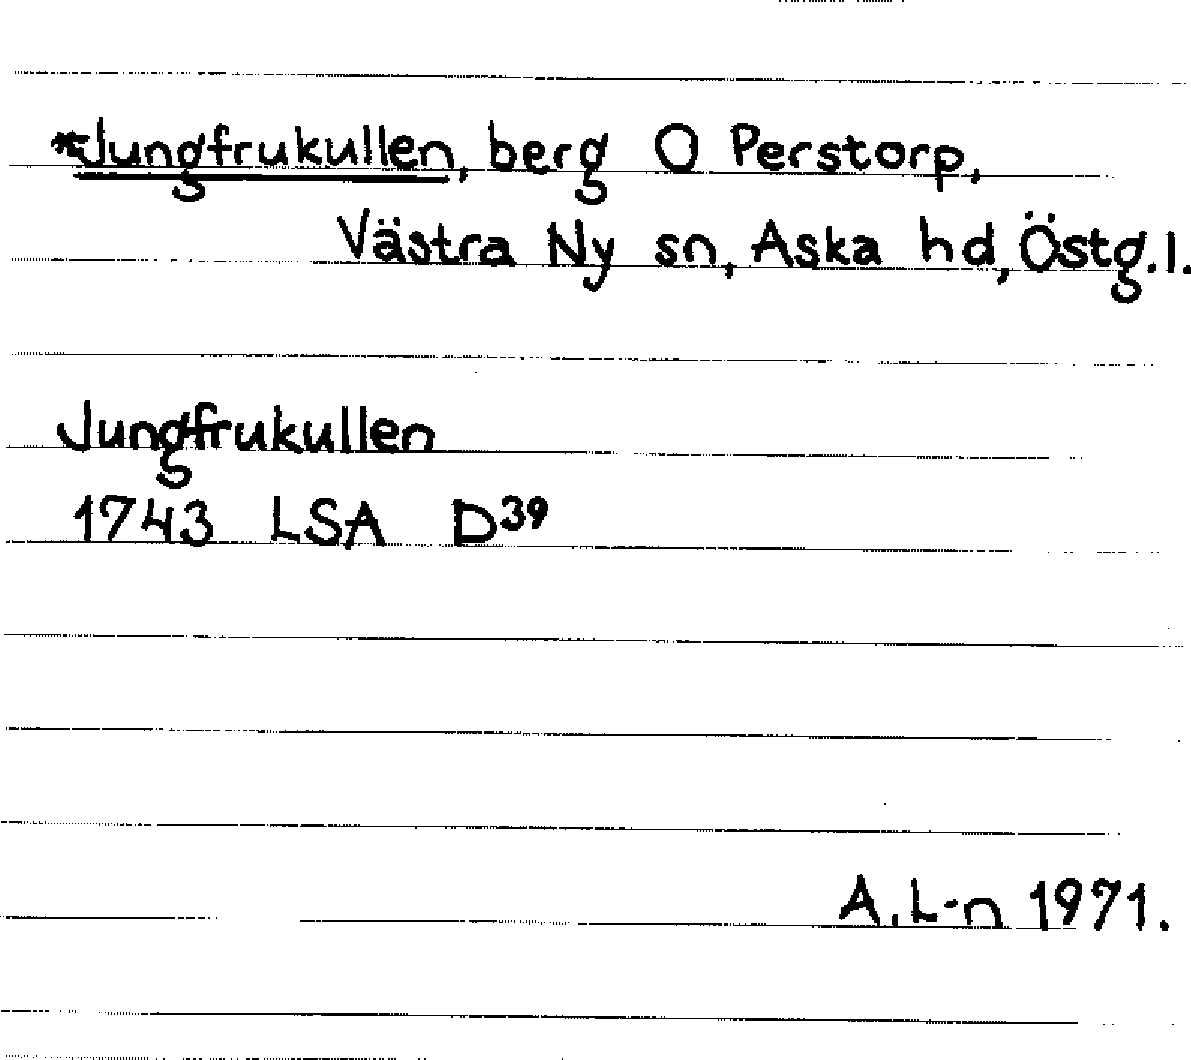 *Jungfrukullen, berg O Perstorp,
Västra Ny sn, Aska hd, Östg.l.
Jungfrukullen
1743 LSA D39
A.L-n 1971.